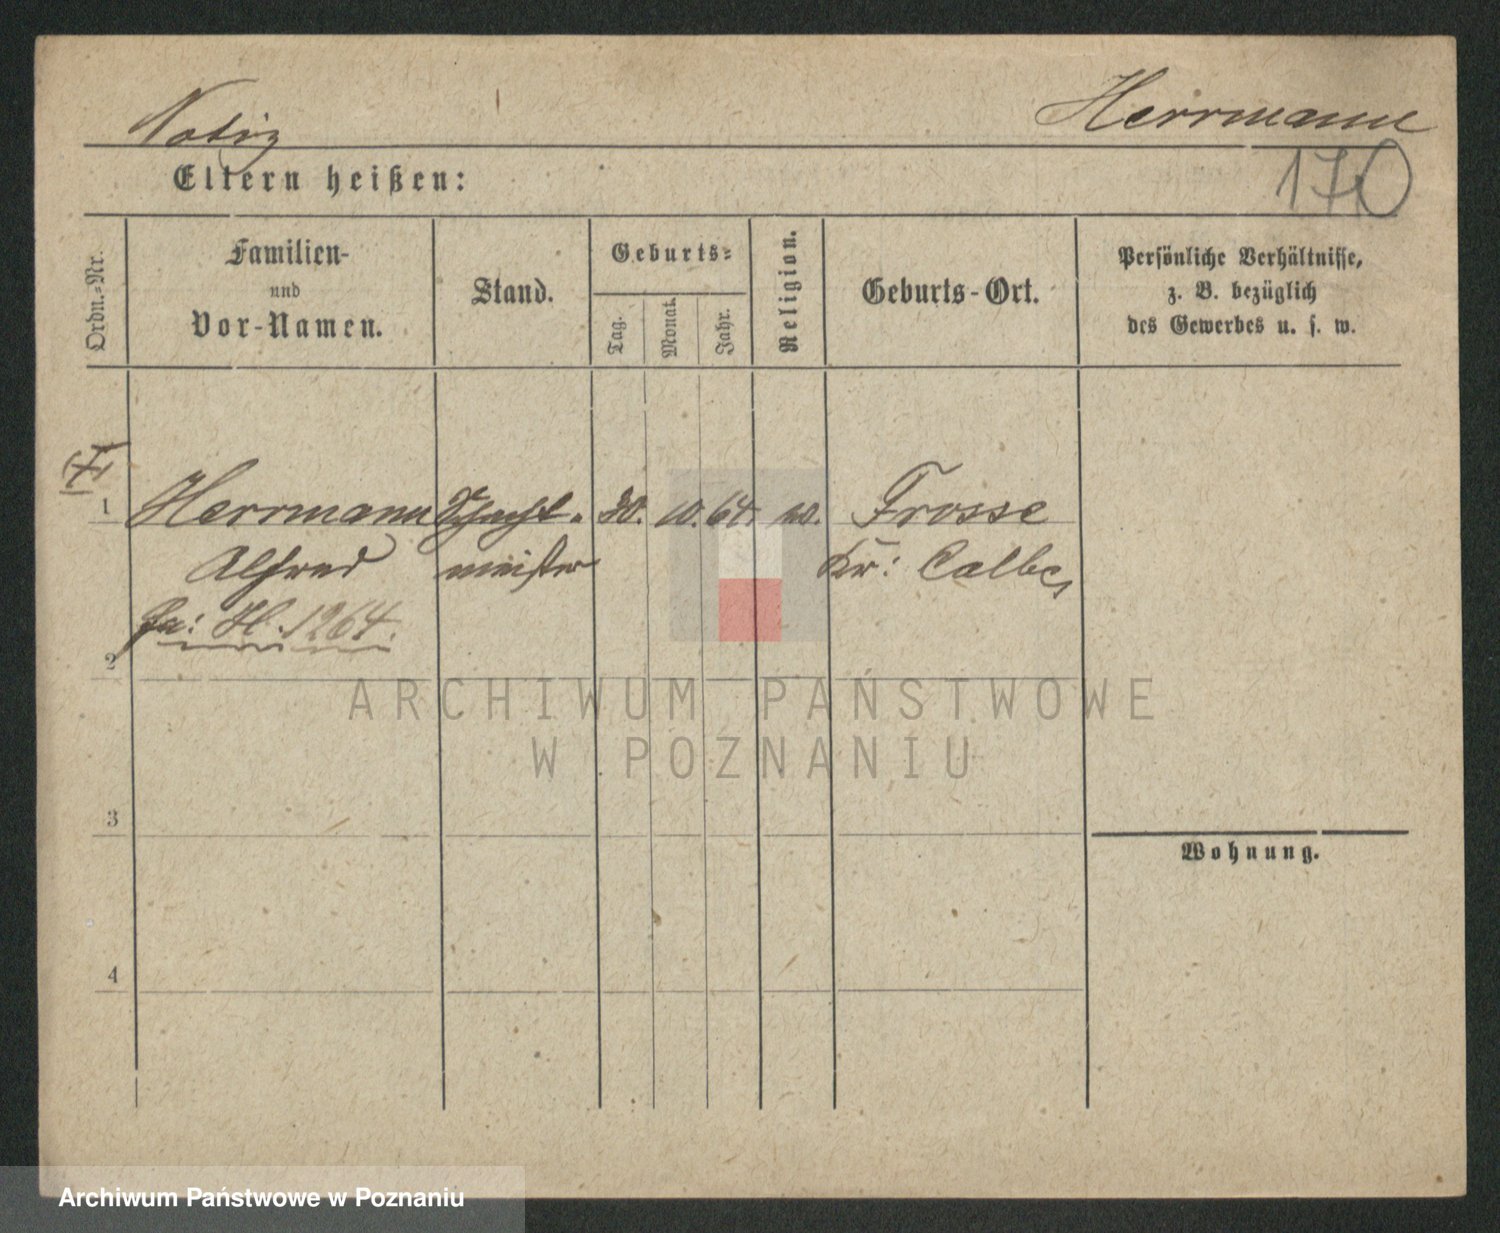 Notiz
Herrmann
170
Eltern heißen:
Ordn.-Nr.
Familien-
und
Vor-Namen.
Stand.
Geburts-
Tag.
Monat.
Jahr.
Religion.
Geburts-Ort.
Persönliche Verhältnisse,
z. B. bezüglich
des Gewerbes u. s. w.
1 Herrmann Schacht- 30. 10. 64. Frosse
Alfred meister Kr: Calbe
H. 1264.
2
ARCHIWUM PAŃSTWOWE
W POZNANIU
3
Wohnung.
4
Archiwum Państwowe w Poznaniu